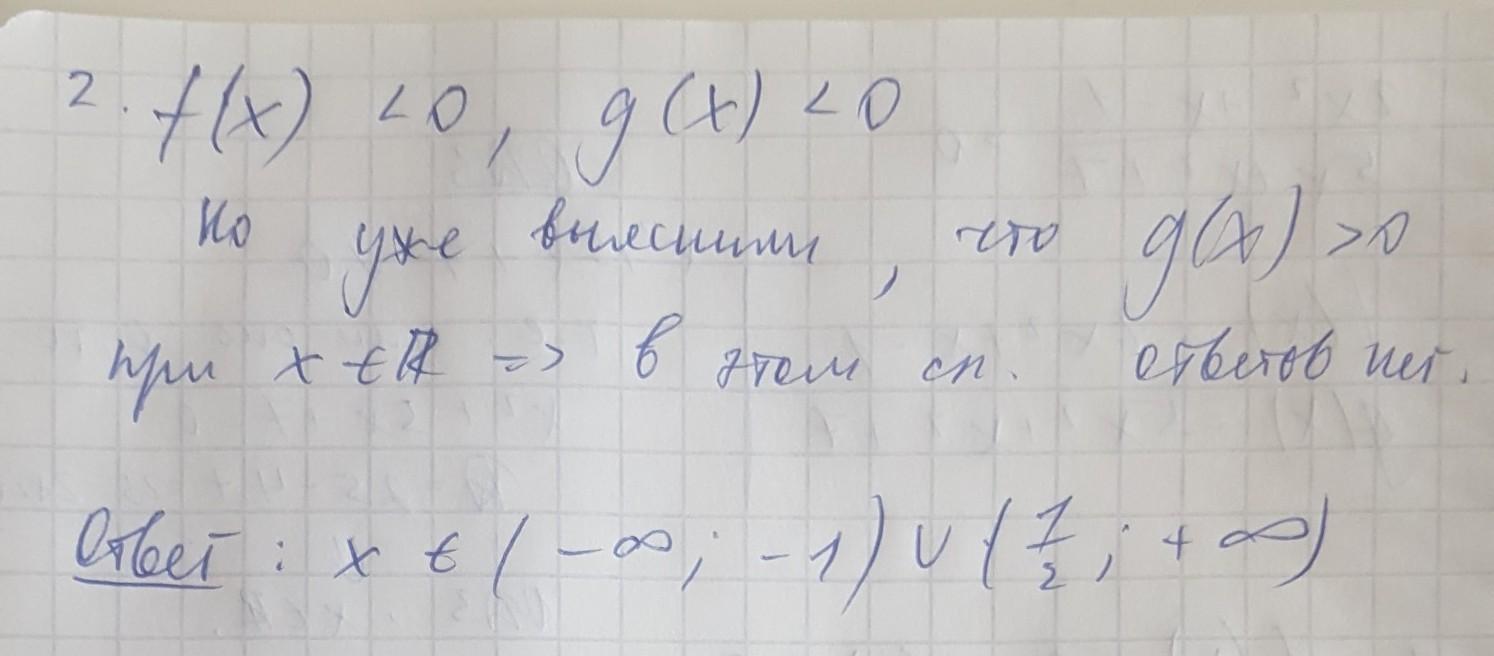 2. f(x) < 0, g(x) < 0
Но уже выяснили, что g(x) > 0
при x ∈ ℝ => в этом сл. ответов нет.
Ответ: x ∈ (-∞; -1) ∪ (1/2; +∞)